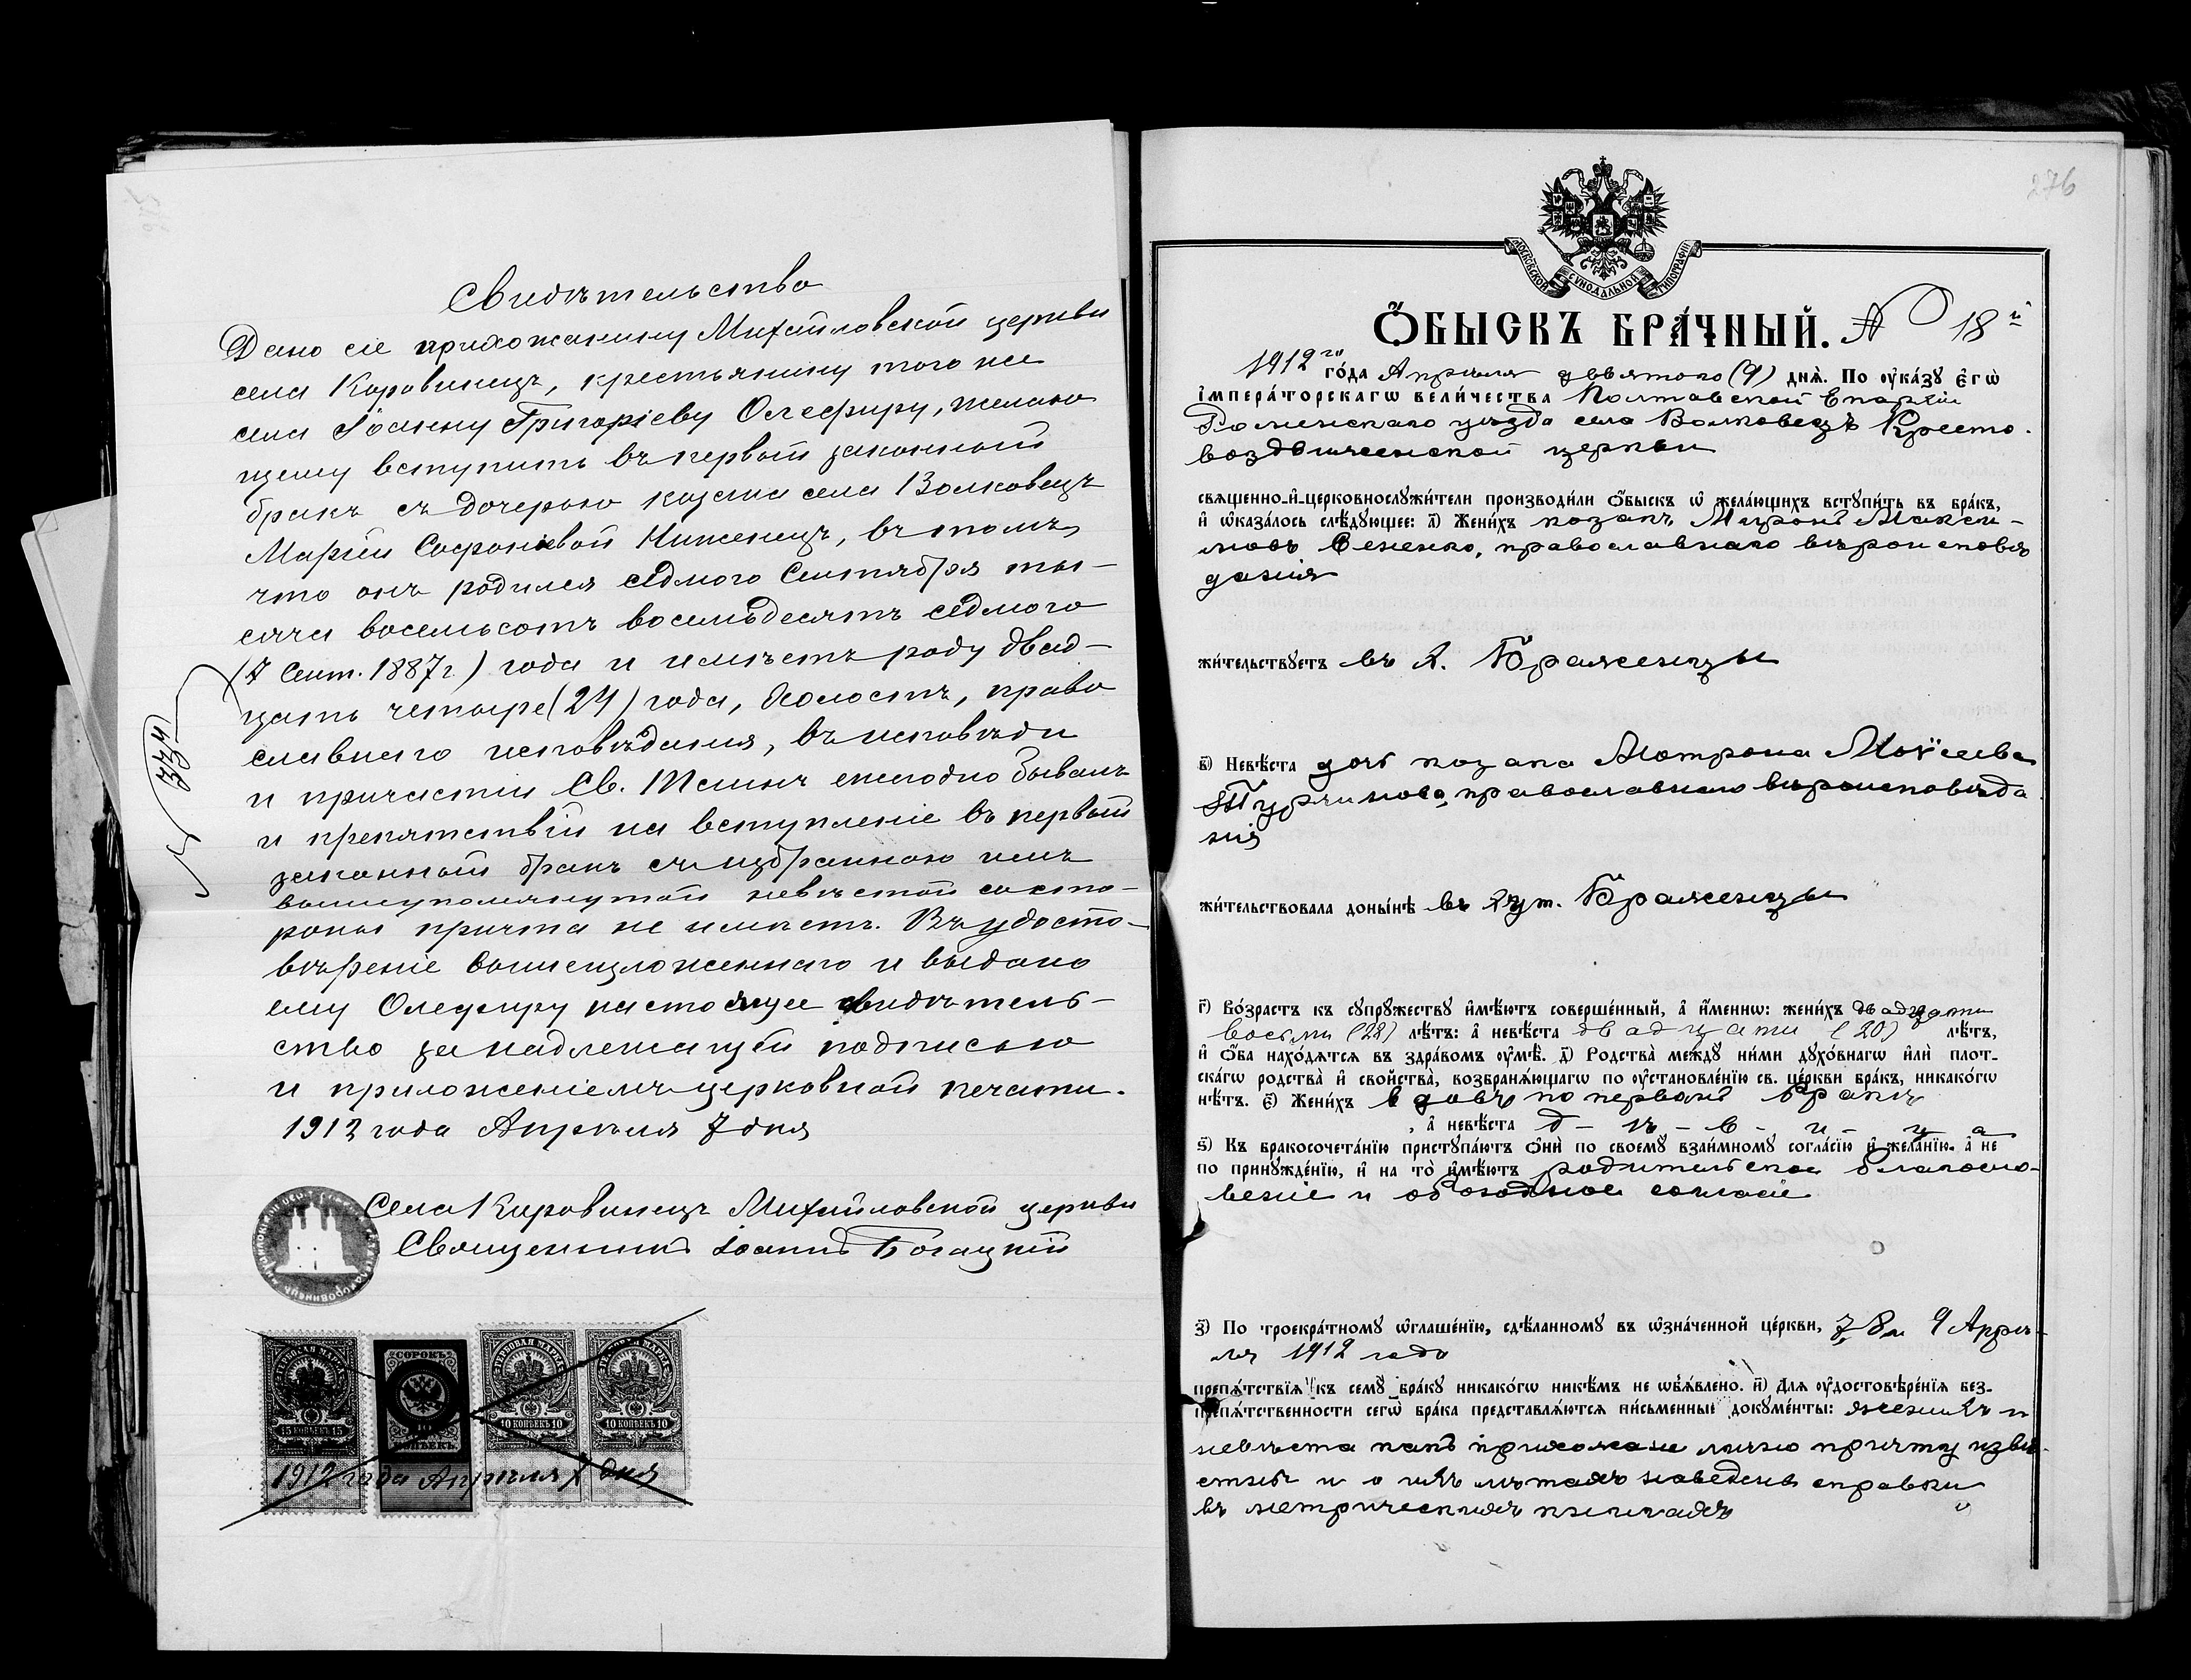 Свидѣтельство
Дано сіе прихожанину Михайловской церкви
села Коровинецъ, крестьянину того же
села Іоанну Григоріеву Олефиру, желаю
щему вступить въ первый законный
бракъ съ дочерью казака села Волковецъ
Маріей Софроніевой Ниженецъ, въ томъ,
что онъ родился седмого Сентября ты-
сяча восемьсотъ восемьдесятъ седмого
(7 Сент. 1887 г.) года и имѣетъ роду двад-
цать четыре (24) года, холостъ, право
славнаго исповѣданія, въ исповѣди
и причастіи Св. Таинъ ежегодно бывалъ
и препятствій на вступленіе въ первый
законный бракъ съ избранною имъ
вышеупомянутой невѣстой со сто-
роны причта не имѣетъ. Въ удосто-
вѣреніе вышеизложеннаго и выдано
ему Олефиру настоящее свидѣтель-
ство за надлежащей подписью
и приложеніемъ церковной печати.
1912 года Апрѣля 7 дня
№ 334
Села Коровинецъ Михайловской церкви
Священникъ Іоаннъ Богацкій
ГЕРБОВАЯ МАРКА СОРОКЪ ГЕРБОВАЯ МАРКА ГЕРБОВАЯ МАРКА
15 КОПѢЕКЪ 15 КОПѢЕКЪ 10 КОПѢЕКЪ 10 10 КОПѢЕКЪ 10
1912 года Апрѣля 7 дня
276
МОСКОВСКОЙ СѴНОДАЛЬНОЙ ТИПОГРАФІИ
ѺБЫСКЪ БРА́ЧНЫЙ. № 18й
1912го го́да Апрѣля девятого (9) днѧ̀. По оу҆ка́зꙋ є҆гѡ̀
і҆мпера́торскагѡ вели́чества Полтавской Епархіи
Роменскаго уѣзда села Волковецъ Кресто-
воздвиженской церкви
свѧщенно-и҆-церковнослꙋжи́тели производи́ли ѻ҆́быскъ ѡ҆ жела́ющихъ встꙋпи́ть въ бра́къ,
и҆ ѡ҆каза́лось слѣ́дꙋющее: а҃) Жени́хъ козакъ Миронъ Макси-
мовъ Вененко, православнаго вѣроисповѣ
данія
жи́тельствꙋетъ въ д. Браженцы
в҃) Невѣ́ста дочь козака Мотрона Моѵсеева
Турчинова, православнаго вѣроисповѣда
нія
жи́тельствовала доны́нѣ въ хут. Браженцы
г҃) Во́зрастъ къ сꙋпрꙋ́жествꙋ и҆мѣ́ютъ соверше́нный, а҆ и҆́меннѡ: жени́хъ двадцати
восьми (28) лѣ́тъ: а҆ невѣ́ста двадцати (20) лѣ́тъ,
и҆ ѻ҆́ба нахо́дѧтсѧ въ здра́вомъ оу҆мѣ̀. д҃) Родства̀ междꙋ̀ ни́ми дꙋхо́внагѡ и҆лѝ плот-
ска́гѡ родства̀ и҆ сво́йства̀, возбранѧ́ющагѡ по оу҆становле́нїю св. це́ркви бра́къ, никако́гѡ
нѣ́тъ. є҃) Жени́хъ вдовъ по первомъ бракѣ
, а҆ невѣ́ста д-ѣ-в-и-ц-а
ѕ҃) Къ бракосочета́нїю пристꙋпа́ютъ ѻ҆нѝ по своемꙋ̀ взаи́мномꙋ согла́сїю и҆ жела́нїю, а҆ не
по принꙋжде́нїю, и҆ на то̀ и҆мѣ́ютъ родительское благосло-
веніе и обоюдное согласіе
з҃) По троекра́тномꙋ ѡ҆глаше́нїю, сдѣ́ланномꙋ въ ѡ҆зна́ченной це́ркви, 7, 8 и 9 Апрѣ-
ля 1912 года
препѧ́тствїѧ къ семꙋ̀ бра́кꙋ никако́гѡ никѣ́мъ не ѡ҆б̾ѧ́влено. и҃) Длѧ оу҆достовѣре́нїѧ без-
препѧ́тственности сегѡ̀ бра́ка представлѧ́ютсѧ пи́сьменные докꙋме́нты: женихъ и
невѣста какъ прихожане лично причту извѣ-
стны и о ихъ лѣтахъ наведены справки
въ метрическихъ книгахъ